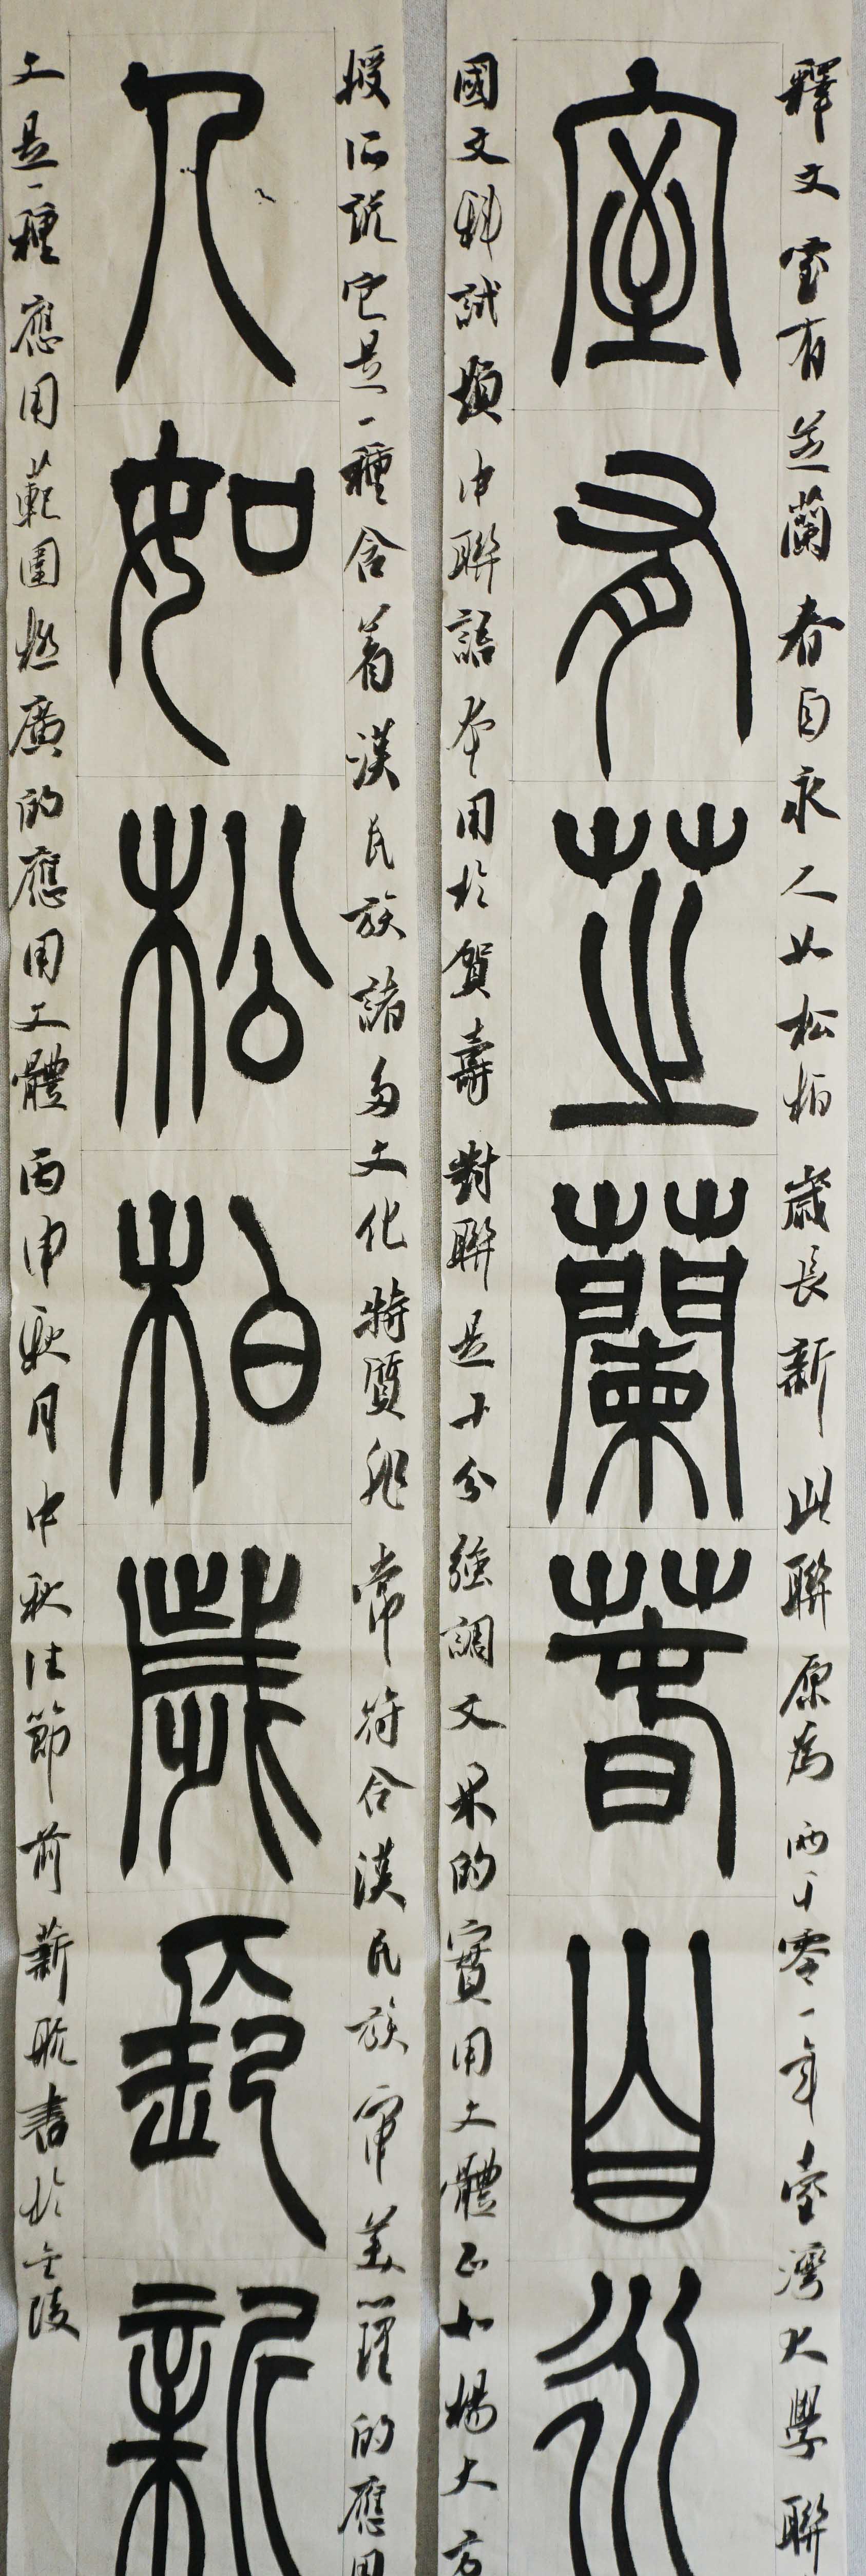 釋文室有芝蘭春自永人如松柏歲長新此聯原為兩千零一年臺灣大學聯
室有芝蘭春自永
國文科試題中聯語本用於賀壽對聯是十分強調文采的實用文體正如楊大方
授所說它是一種含着漢民族諸多文化特質非常符合漢民族審美心理的應用
人如松柏歲長新
文是一種應用範圍極廣的應用文體丙申秋月中秋佳節前新航書於金陵